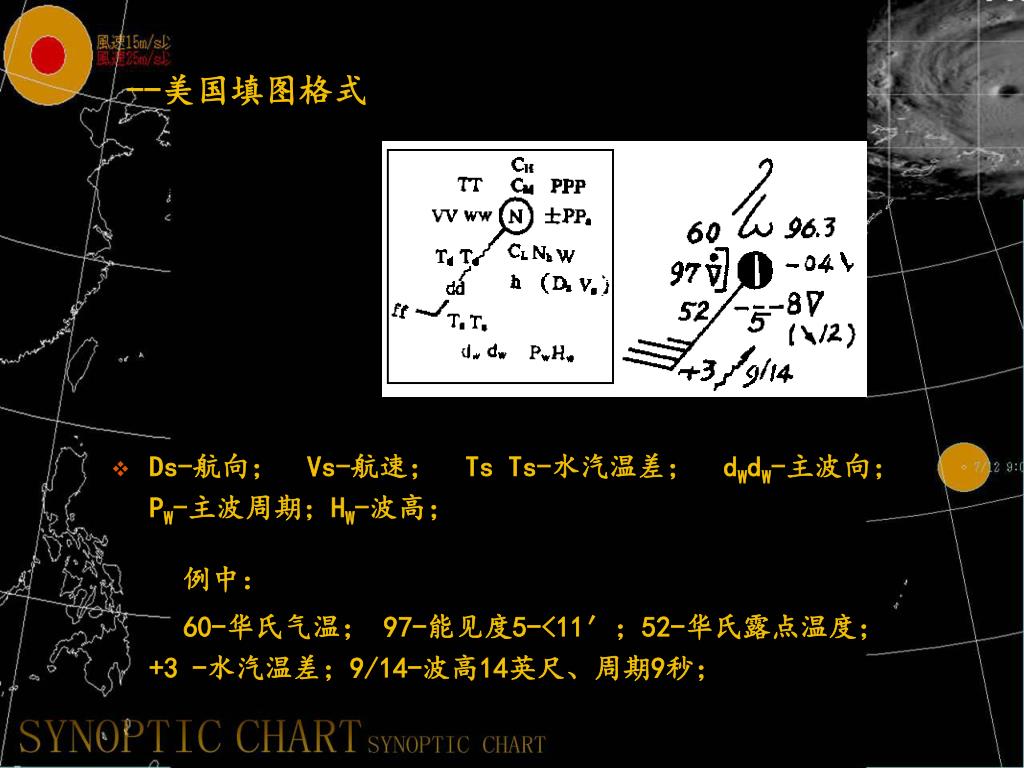 風速15m/s以
風速25m/s以
--美国填图格式
C_H
TT C_M PPP
VV ww N ±PPa
Td Td C_L N_h W
dd h (Ds Vs)
ff Ts Ts
dw dw PwHw
60 96.3
97 -04
52 -5-8
(12)
+3 9/14
❖ Ds-航向; Vs-航速; Ts Ts-水汽温差; dWdW-主波向;
PW-主波周期;HW-波高;
例中:
60-华氏气温; 97-能见度5-<11′;52-华氏露点温度;
+3 -水汽温差;9/14-波高14英尺、周期9秒;
7/12 9:0
SYNOPTIC CHART SYNOPTIC CHART